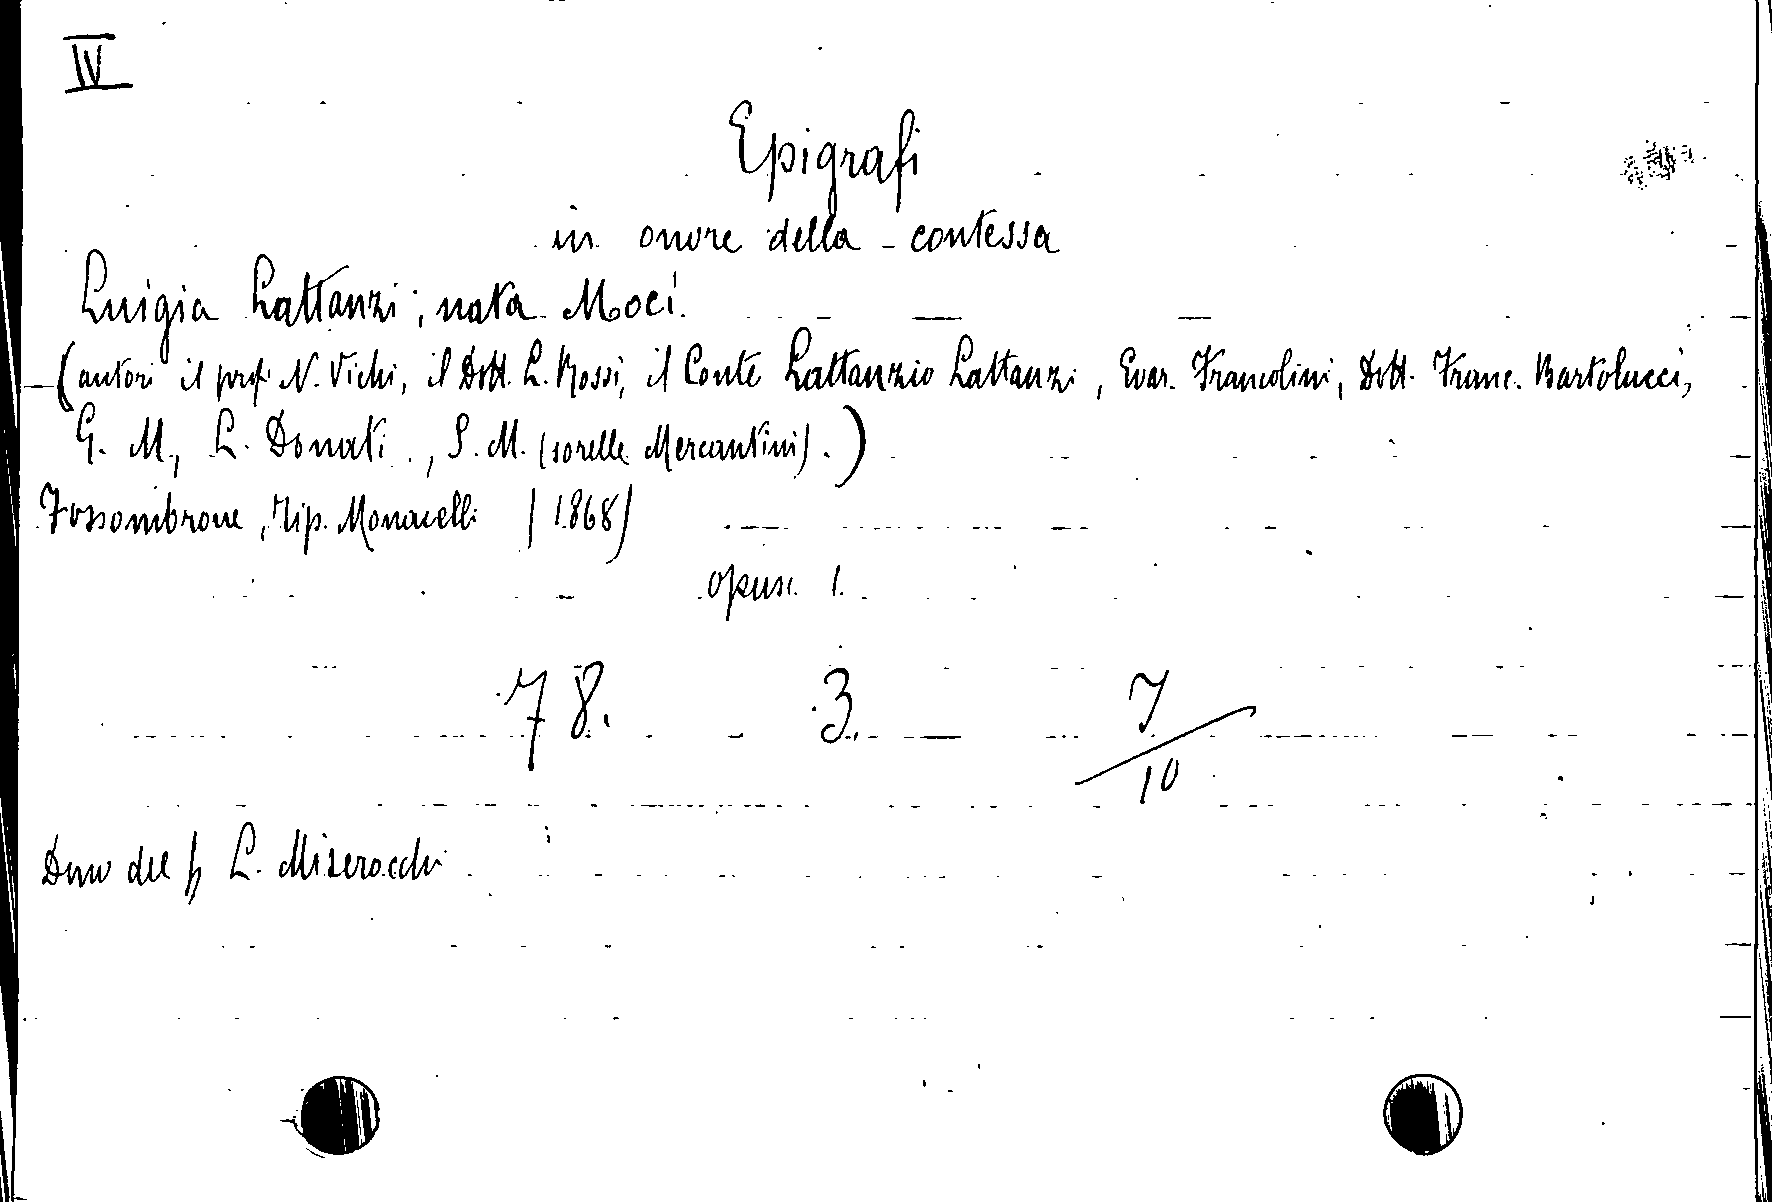 IV
Epigrafi
in onore della contessa
Luigia Lattanzi, nata Moci.
(autori il prof. N. Vichi, il Dott. L. Rossi, il Conte Lattanzio Lattanzi, Evar. Francolini, Dott. Franc. Bartolucci,
G. M., L. Donati, S. M. (sorelle Mercantini).)
Fossombrone, Tip. Monacelli (1868)
opusc. 1.
78. 3. 7/10
Dono del L. Miserocchi